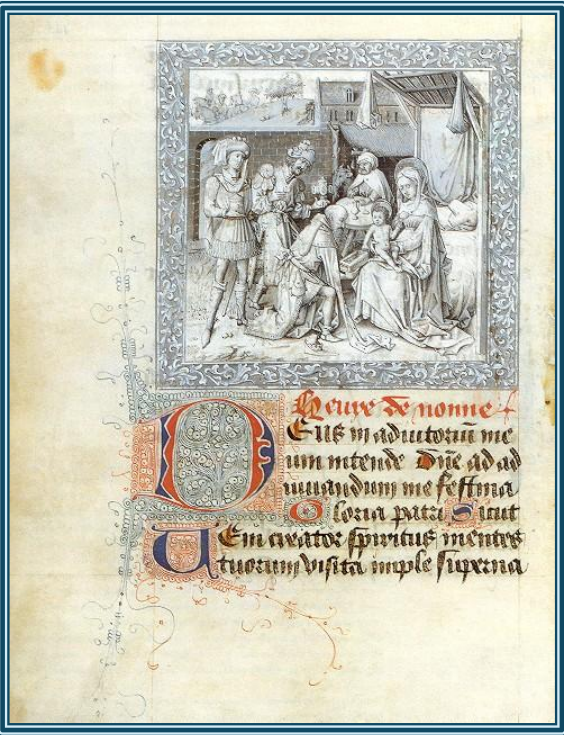 Heure de nonne
DEus in adiutoriũ me
um intende Dñe ad ad
iuuandum me festina
Gloria patri Sicut
UEni creator spiritus mentes
tuorum visita imple superna